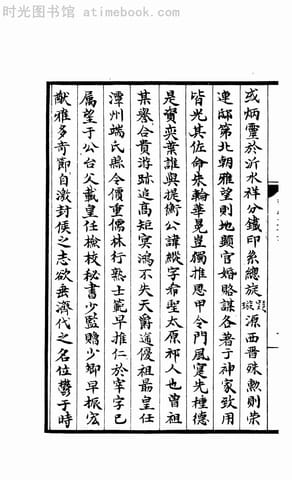 时光图书馆 — atimebook.com
或炳靈於沂水祥分鐵印系總旋源西晋殊勲則榮
連邸第北朝雅望則地顕官婚賂謀各著于神家致用
皆光其佐命朱輪華冕豈獨推恩甲令門風寔先種德
是資奕葉誰與提衡公諱縱字希聖太原祁人也曽祖
某譽合貴游跡追高矩冥鴻不失天爵道優祖最皇任
潭州端氏縣令價重儒林行熟士範早推仁於宰字已
属望于公台父載皇任檢校秘書少監贈少卿早振宏
猷雅多奇節自激封候之志欲垂濟代之名位鬱于時